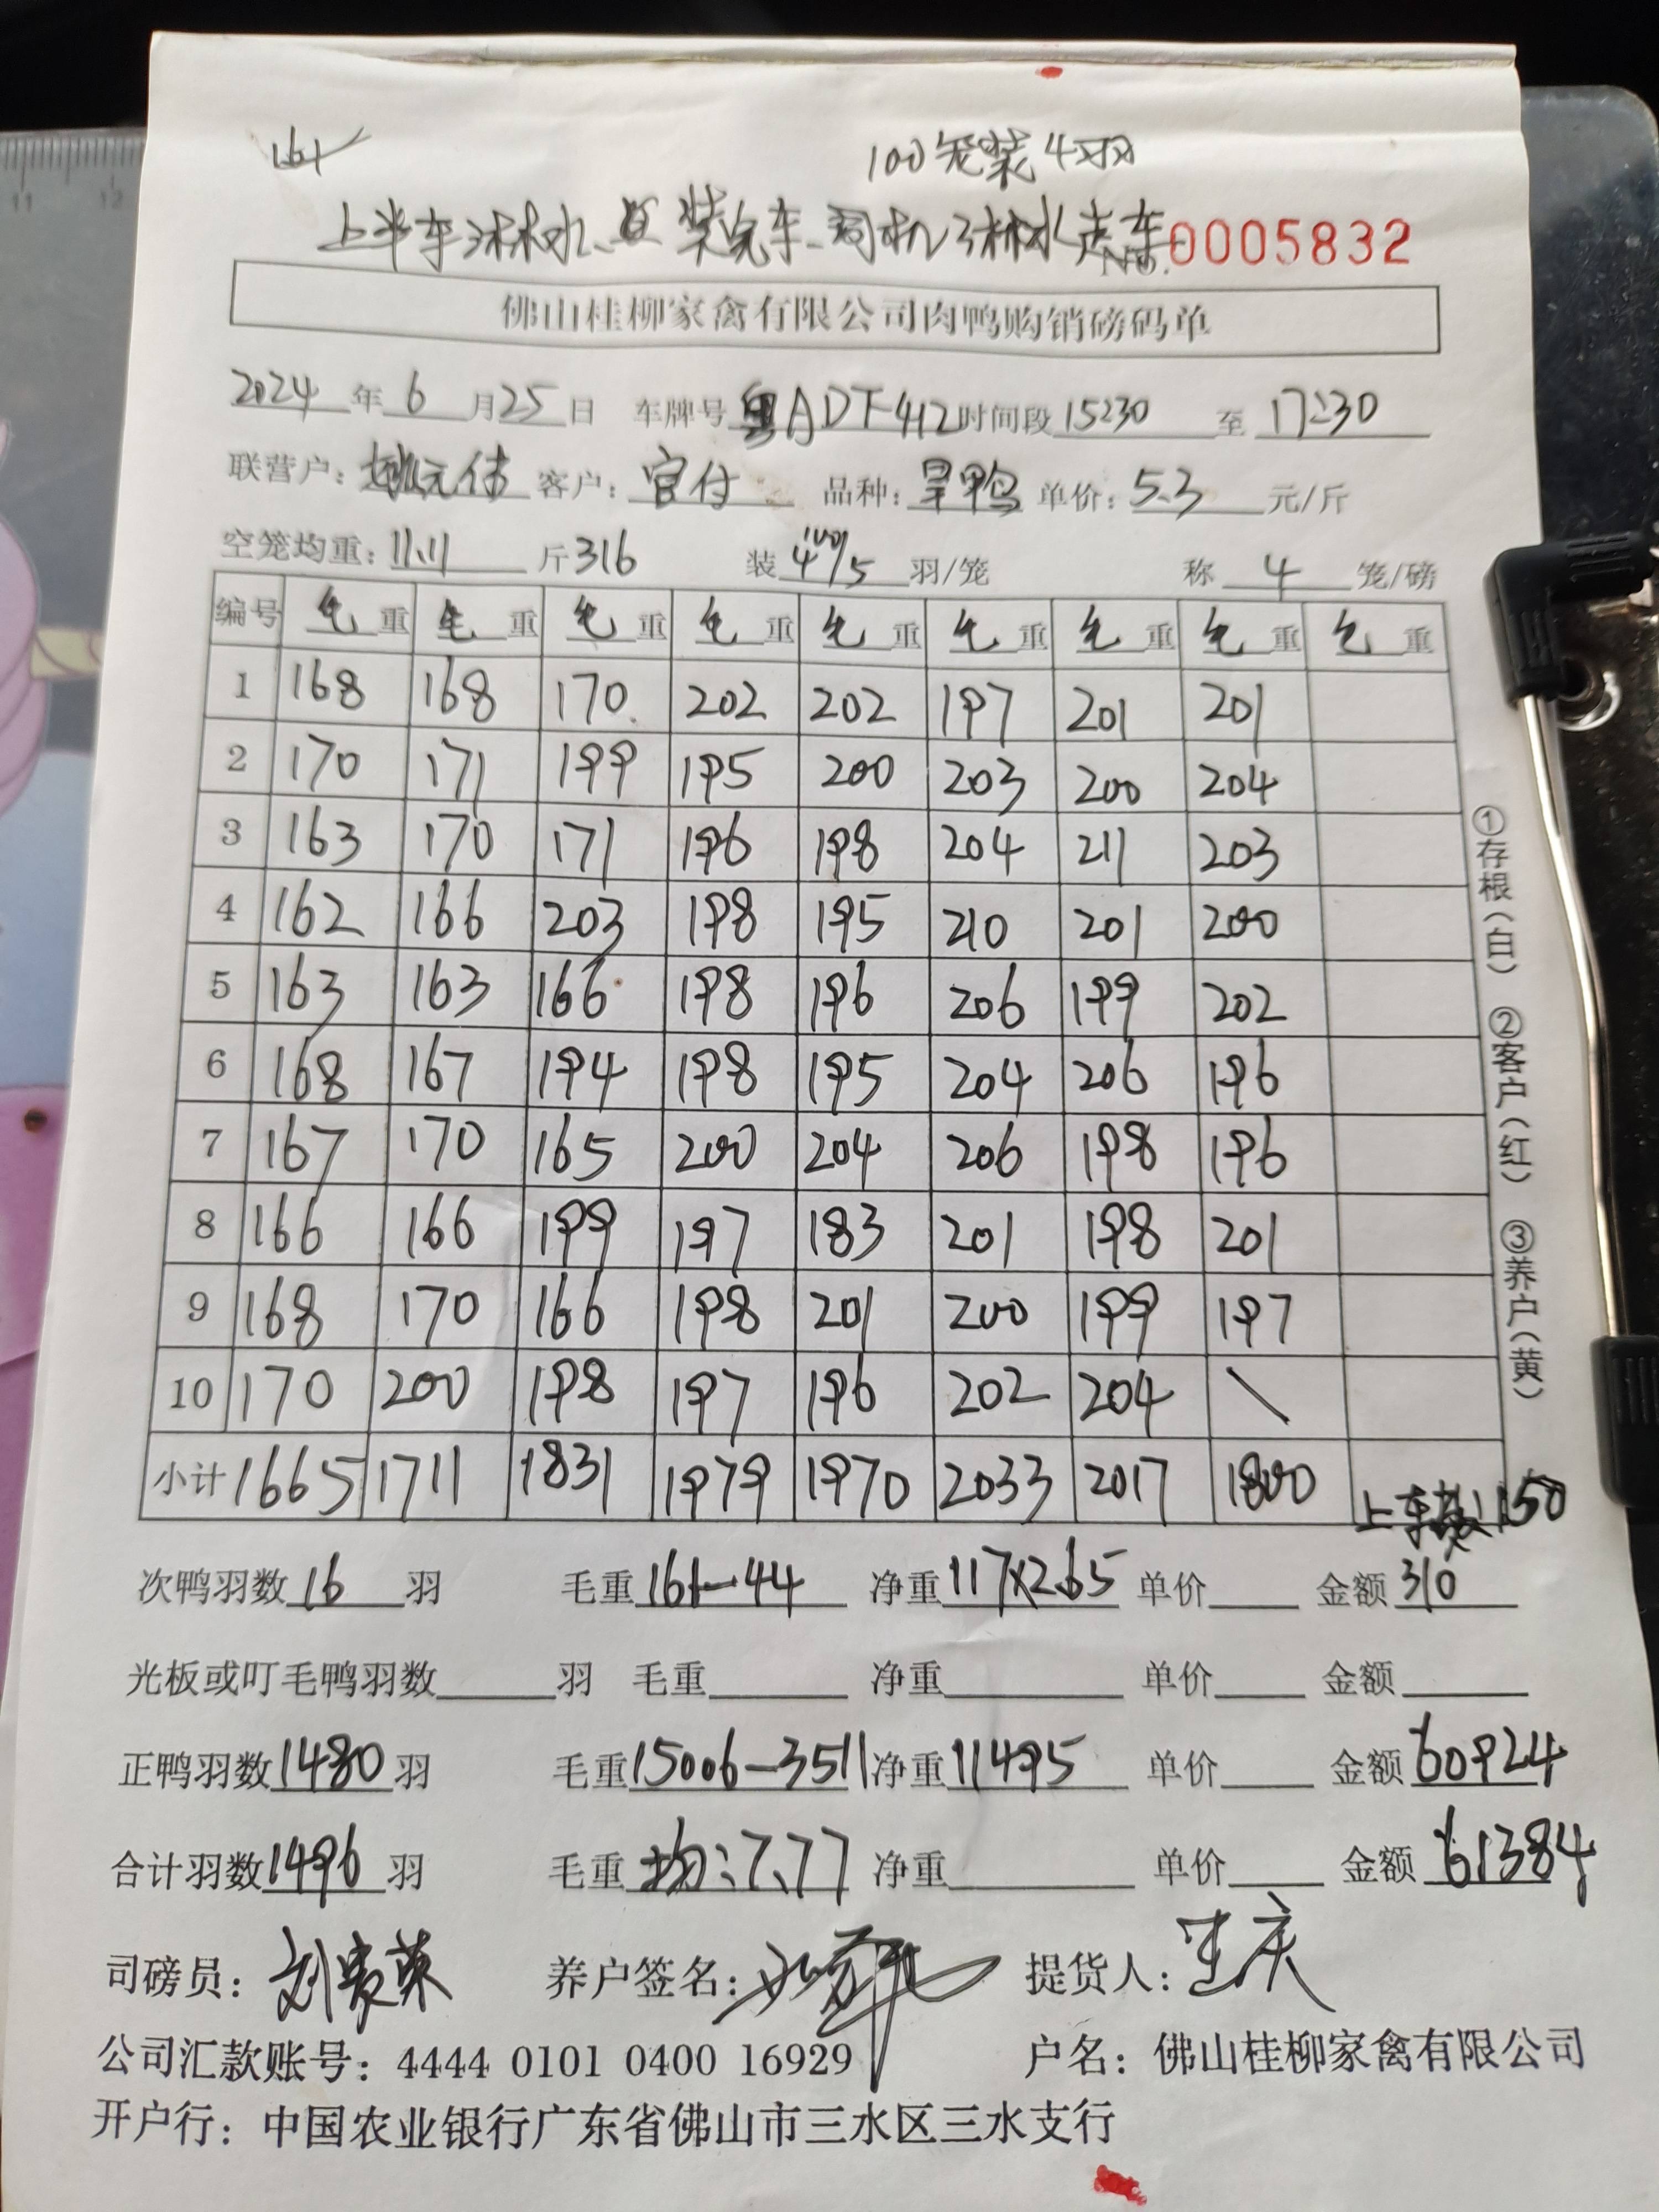 161
100笼装4羽
上半车淋水、装完车、司机淋水走车
No.0005832
佛山桂柳家禽有限公司肉鸭购销磅码单
2024年6月25日 车牌号粤ADF412时间段15:30至17:30
联营户: 客户:官付 品种:旱鸭 单价:5.3元/斤
空笼均重:11.11斤316 装4/100/5羽/笼 称4笼/磅
编号 毛重 毛重 毛重 毛重 毛重 毛重 毛重 毛重 毛重
1 168 168 170 202 202 197 201 201
2 170 171 199 195 200 203 200 204
3 163 170 171 196 198 204 211 203
4 162 166 203 198 195 210 201 200
5 163 163 166 198 196 206 199 202
6 168 167 194 198 195 204 206 196
7 167 170 165 200 204 206 198 196
8 166 166 199 197 183 201 198 201
9 168 170 166 198 201 200 199 197
10 170 200 198 197 196 202 204 \
小计 1665 1711 1831 1979 1970 2033 2017 1800
上车 150
次鸭羽数16羽 毛重161-44 净重117×2.65 单价 金额310
光板或叮毛鸭羽数 羽 毛重 净重 单价 金额
正鸭羽数1480羽 毛重15006-3511净重11495 单价 金额60924
合计羽数1496羽 毛重均:7.77 净重 单价 金额61384
司磅员: 养户签名: 提货人:
公司汇款账号:4444 0101 0400 16929 户名:佛山桂柳家禽有限公司
开户行:中国农业银行广东省佛山市三水区三水支行
①存根(白) ②客户(红) ③养户(黄)